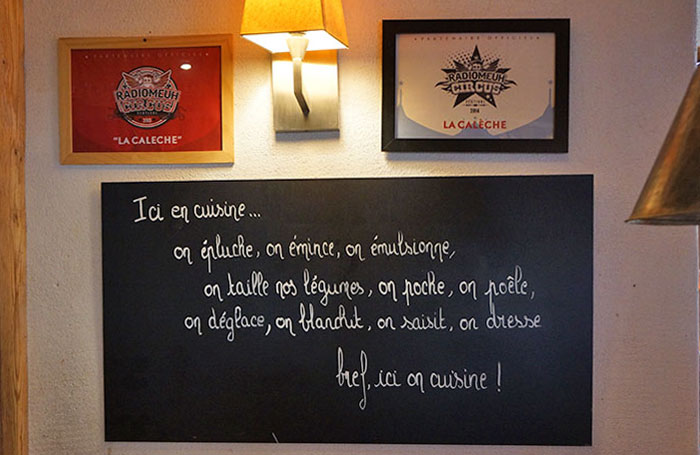 PARTENAIRE OFFICIEL
RADIOMEUH
CIRCUS
FESTIVAL
"LA CALECHE"
PARTENAIRE OFFICIEL
RADIOMEUH
CIRCUS
FESTIVAL
LA CALÈCHE
Ici en cuisine...
on épluche, on émince, on émulsionne,
on taille nos légumes, on poche, on poêle,
on déglace, on blanchit, on saisit, on dresse
bref, ici on cuisine !